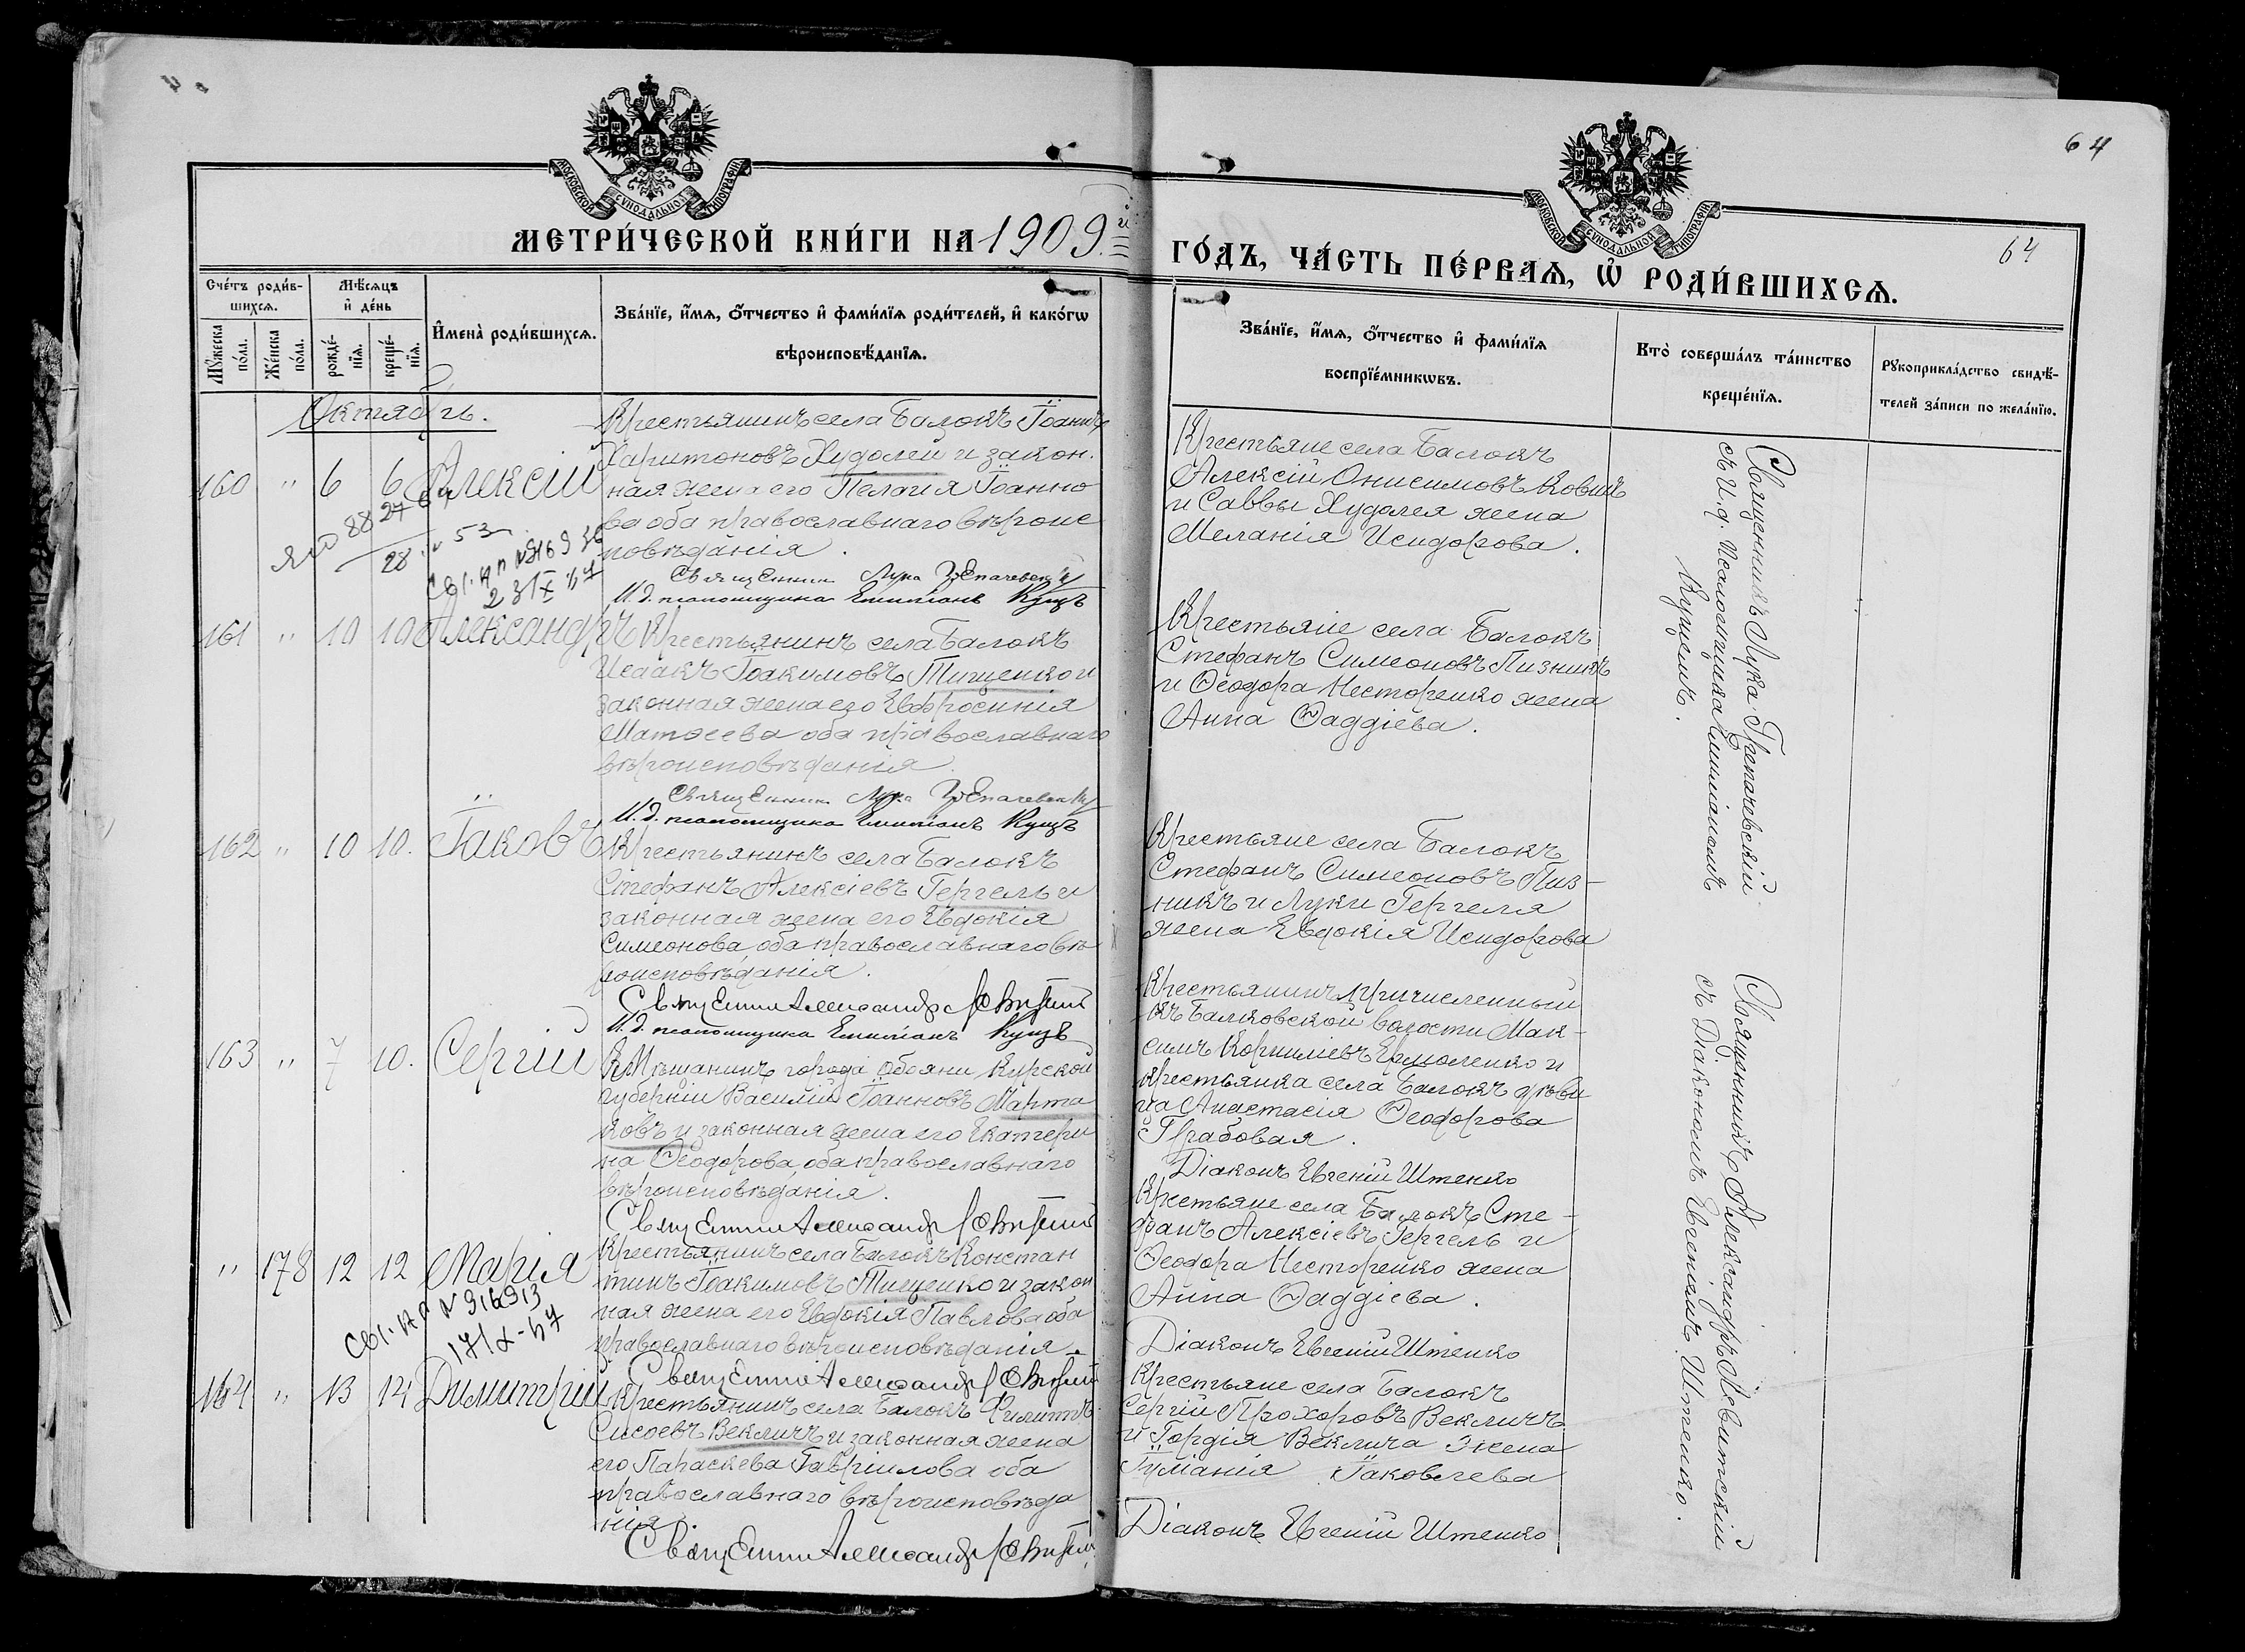 64
МОСКОВСКОЙ СѴНОДАЛЬНОЙ ТИПОГРАФІИ
МОСКОВСКОЙ СѴНОДАЛЬНОЙ ТИПОГРАФІИ
МЕТРИ́ЧЕСКОЙ КНИ́ГИ НА 1909й
ГО́ДЪ, ЧА́СТЬ ПЕ́РВАѦ, Ѡ҆ РОДИ́ВШИХСѦ.
64
Сче́тъ роди́в-
шихсѧ.
Мꙋ́жеска по́ла.
Же́нска по́ла.
Мѣ́сѧцъ
и҆ де́нь
рожде́-
нїѧ.
креще́-
нїѧ.
И҆мена̀ роди́вшихсѧ.
Зва́нїе, и҆́мѧ, ѻ҆́тчество и҆ фами́лїѧ роди́телей, и҆ како́гѡ
вѣроисповѣ́данїѧ.
Зва́нїе, и҆́мѧ, ѻ҆́тчество и҆ фами́лїѧ
воспрїе́мникѡвъ.
Кто̀ соверша́лъ та́инство
креще́нїѧ.
Рꙋкоприкла́дство свидѣ́-
телей за́писи по жела́нїю.
Октябрь.
160 " 6 6 Алексій
Крестьянинъ села Балокъ Іоаннъ
Харитоновъ Худолей и закон.
ная жена его Пелагия Іоанно
ва оба православнаго вѣроис
повѣданія.
Священник Лука Грепачевскій
И. д. псаломщика Емиліанъ Куцъ
Крестьяне села Балокъ
Алексій Онисимовъ Ковшъ
и Саввы Худолея жена
Меланія Исидорова.
28
161 " 10 10 Александръ
Крестьянинъ села Балокъ
Исаакъ Іоакимовъ Тищенко и
законная жена его Евфросинія
Матѳеева оба православнаго
вѣроисповѣданія.
Священник Лука Грепачевскій
И. д. псаломщика Емиліанъ Куцъ
Крестьяне села Балокъ
Стефанъ Симеоновъ Пизникъ
и Ѳеодора Несторенко жена
Анна Ѳаддіева.
162 " 10 10. Іаковъ
Крестьянинъ села Балокъ
Стефанъ Алексіевъ Гергель и
законная жена его Евдокія
Симеонова, оба православнаго вѣ
роисповѣданія.
Священник Александр Левитскій
И. д. псаломщика Емиліанъ Куцъ
Крестьяне села Балокъ
Стефанъ Симеоновъ Пиз-
никъ и Луки Гергеля
жена Евдокія Исидорова
Священникъ Лука Грепачевскій
съ И. д. Псаломщика Емиліаномъ
Куцемъ.
163 " 7 10. Сергій
Мѣщанинъ города Обояни Курской
губерніи Василій Іоанновъ Марта
ковъ и законная жена его Екатери
на Ѳеодорова, оба православнаго
вѣроисповѣданія.
Священник Александр Левитскій
Крестьянинъ причисленный
къ Балковской волости Мак-
симъ Корниліевъ Ермоленко и
крестьянка села Балокъ дѣви
ца Анастасія Ѳеодорова
Грабовая.
Діаконъ Евгеній Штенко
" 178 12 12 Марія
Крестьянинъ села Балокъ Констан
тинъ Іоакимовъ Тищенко и закон
ная жена его Евдокія Павлова оба
православнаго вѣроисповѣданія.
Священник Александр Левитскій
Крестьяне села Балокъ Сте-
фанъ Алексіевъ Гергель и
Ѳеодора Несторенко жена
Анна Ѳаддіева.
Діаконъ Евгеній Штенко
164 " 13 14 Димитрій
Крестьянинъ села Балокъ Филиппъ
Сисоевъ Векличъ и законная жена
его Параскева Гавриилова оба
православнаго вѣроисповѣда
нія.
Священник Александр Левитскій
Крестьяне села Балокъ
Сергій Прохоровъ Векличъ
и Гордія Веклича жена
Іуліанія Іаковлева
Діаконъ Евгеній Штенко
Священникъ Александръ Левитскій
съ Діакономъ Евгеніемъ Штенко.